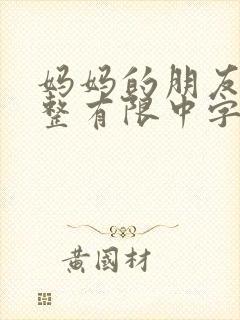 妈妈的朋友
整有限中字
黄國材